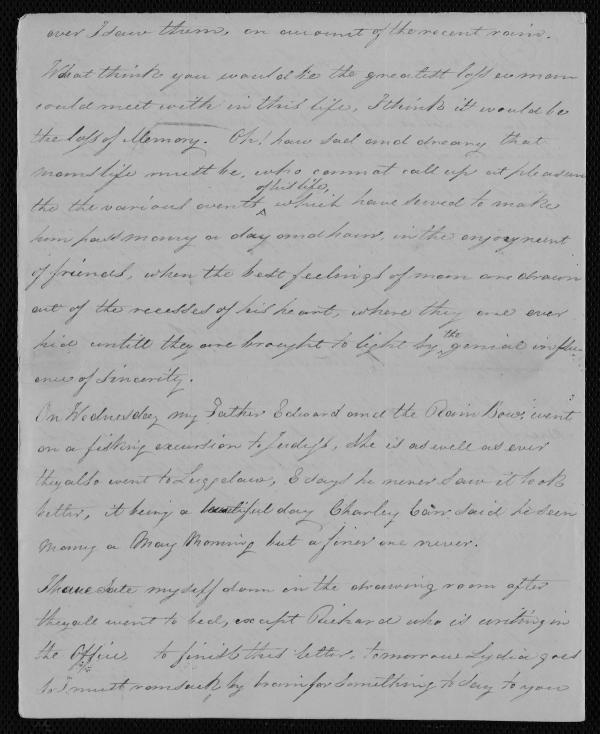 over I saw them, on account of the recent rain.
What think you would be the greatest loss a man
could meet with in this life, I think it would be
the loss of Memory. Oh! how sad and dreary that
mans life must be, who cannot call up at pleasure
of his life,
the the various events ^ which have served to make
him pass many a day and hour, in the enjoyment
of friends, when the best feelings of man are drawn
out of the recesses of his heart, where they are ever
hid untill they are brought to light by ^the genial influ
ence of sincerity.
On Wednesday my Father Edward and the Rain Bow went
on a fishing excursion to Judy's, She is as well as ever
they also went to Luggelaw, E says he never saw it look
better, it being a beautiful day Charley Carr said he seen
many a May Morning but a finer one never.
I have Sate myself down in the drawing room after
they all went to bed, except Richard who is writing in
the Office to finish this letter, tomorrow Lydia goes
So I must ransack my brain for something to say to you